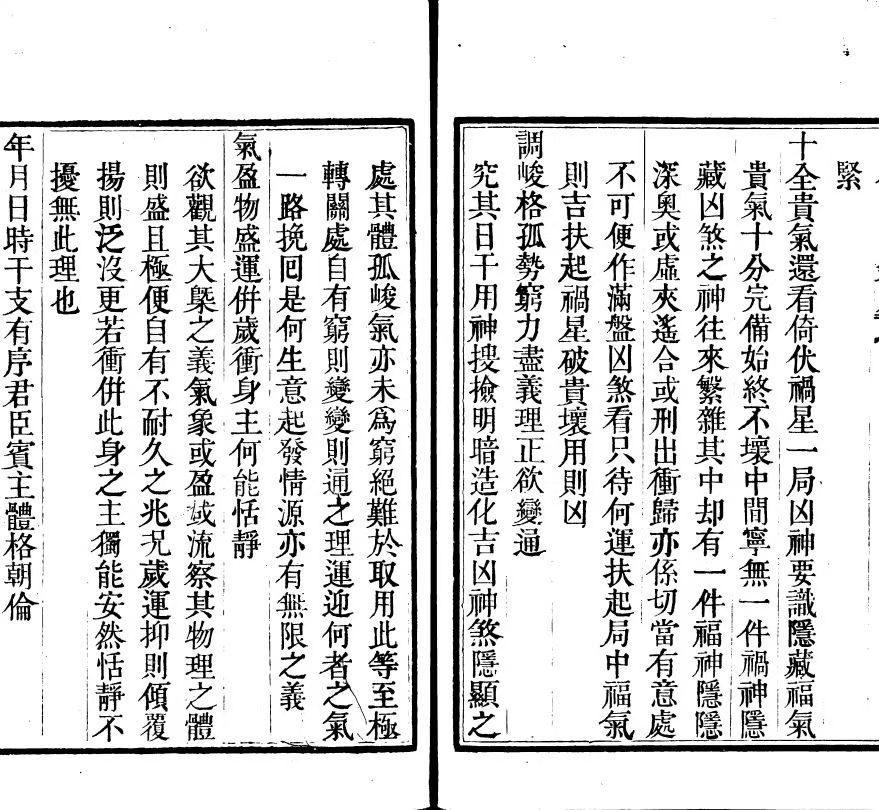 緊
十全貴氣還看倚伏禍星一局凶神要識隱藏福氣
貴氣十分完備始終不壞中間寧無一件禍神隱
藏凶煞之神往來繁雜其中却有一件福神隱隱
深奧或虛夾遙合或刑出衝歸亦係切當有意處
不可便作滿盤凶煞看只待何運扶起局中福氣
則吉扶起禍星破貴壞用則凶
調峻格孤勢窮力盡義理正欲變通
究其日干用神搜撿明暗造化吉凶神煞隱顯之
處其體孤峻氣亦未為窮絕難於取用此等至極
轉關處自有窮則變變則通之理運迎何者之氣
一路挽回是何生意起發情源亦有無限之義
氣盈物盛運併歲衝身主何能恬靜
欲觀其大槩之義氣象或盈或流察其物理之體
則盛且極便自有不耐久之兆况歲運抑則傾覆
揚則泛沒更若衝併此身之主獨能安然恬靜不
擾無此理也
年月日時干支有序君臣賓主體格朝倫